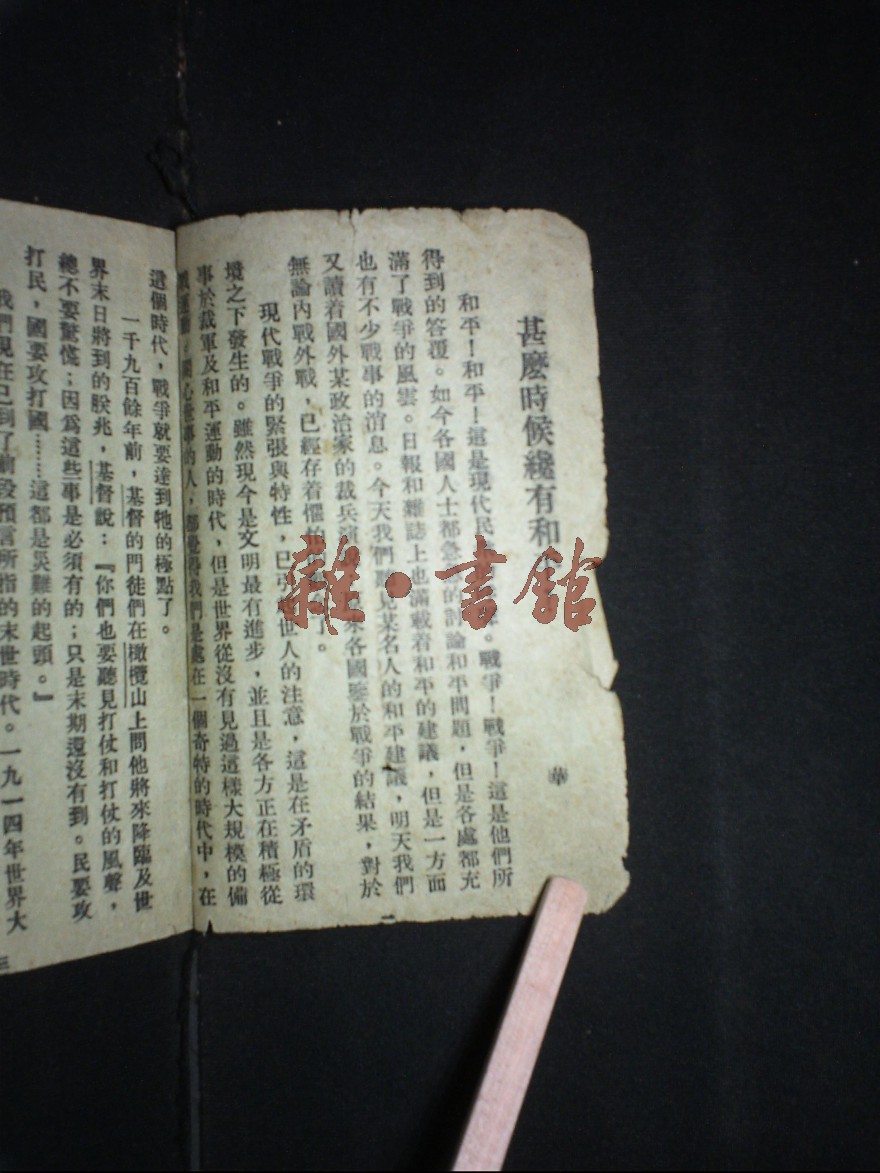 甚麽時候纔有和
華
和平！和平！這是現代民。戰爭！戰爭！這是他們所
得到的答覆。如今各國人士都急的討論和平問題，但是各處都充
滿了戰爭的風雲。日報和雜誌上也滿載着和平的建議，但是一方面
也有不少戰事的消息。今天我們見某名人的和平建議，明天我們
又讀着國外某政治家的裁兵演來各國鑒於戰爭的結果，對於
無論內戰外戰，已經存着懼怕了。
現代戰爭的緊張與特性，已引世人的注意，這是在矛盾的環
境之下發生的。雖然現今是文明最有進步，並且是各方正在積極從
事於裁軍及和平運動的時代，但是世界從沒有見過這樣大規模的備
戰運動，關心世事的人，都覺得我們是處在一個奇特的時代中，在
一
這個時代，戰爭就要達到牠的極點了。
一千九百餘年前，基督的門徒們在橄欖山上問他將來降臨及世
界末日將到的朕兆，基督說：『你們也要聽見打仗和打仗的風聲，
總不要驚慌；因爲這些事是必須有的；只是末期還沒有到。民要攻
打民，國要攻打國……這都是災難的起頭。』
我們現在已到了前段預言所指的末世時代。一九一四年世界大
三
雜·書館